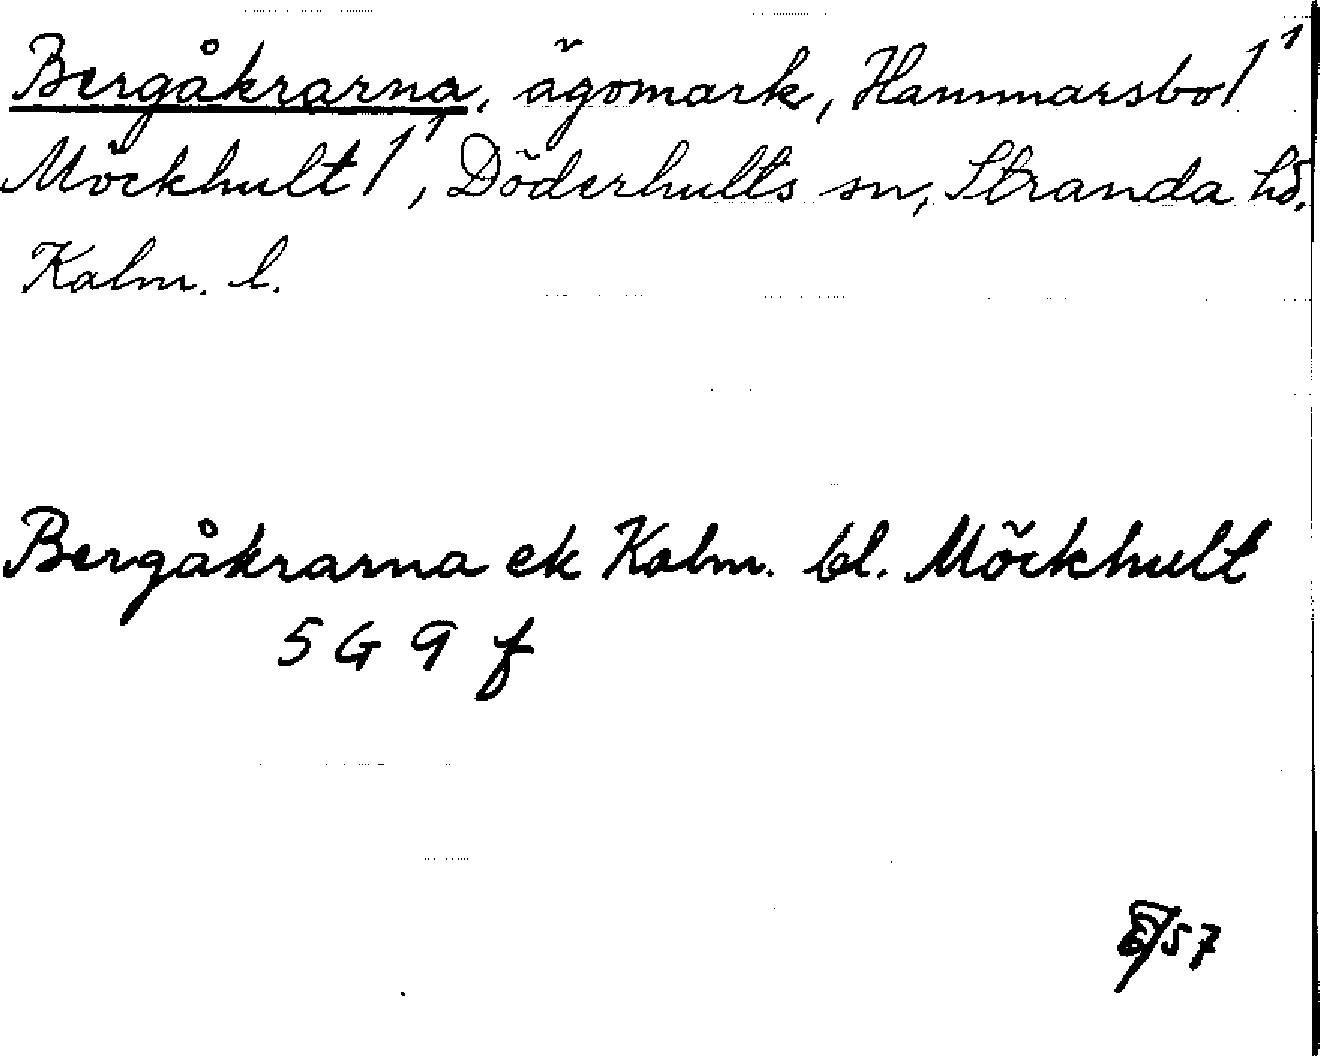 Bergåkrarna, ägomark, Hammarsbo 1¹
Möckhult 1¹, Döderhults sn, Stranda hd.
Kalm. l.
Bergåkrarna ek Kalm. bl. Möckhult
5 G 9 f
57